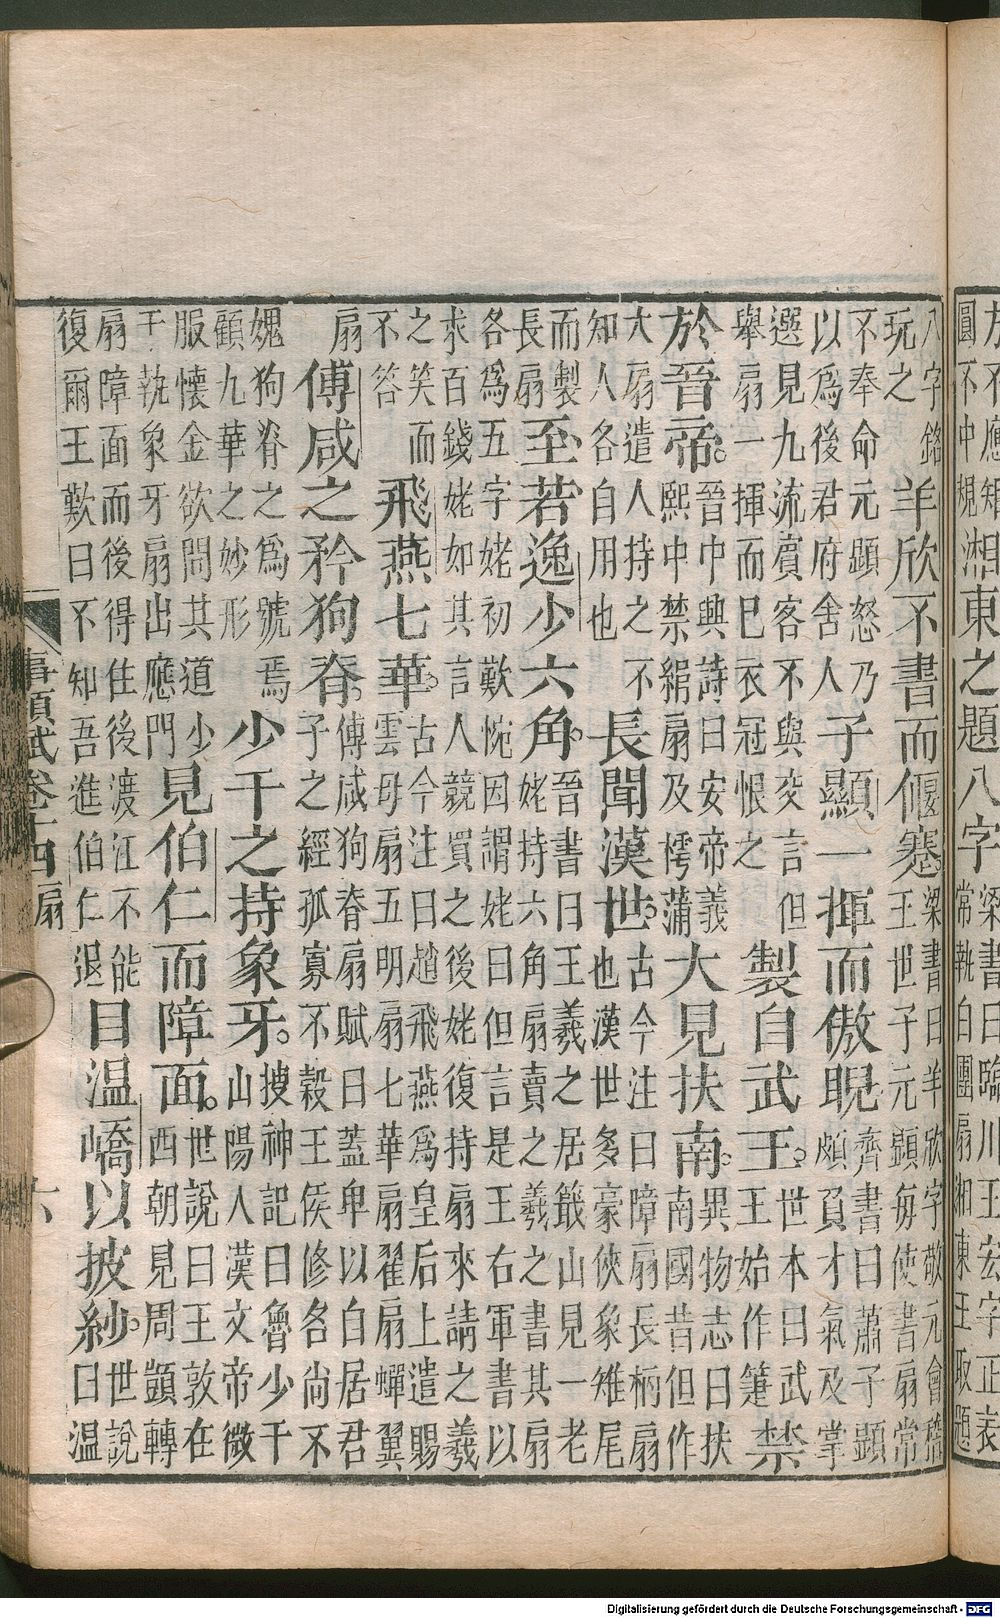 方不應矩
圓不中規
湘東之題八字
梁書曰臨川王宏字正義
常執白團扇湘東王取題
八字銘
玩之
羊欣不書而偃蹇
梁書曰羊欣字敬元會稽
王世子元顯每使書扇常
不奉命元顯怒乃
以為後君府舍人
子顯一揮而傲睨
齊書曰蕭子顯
頗負才氣及掌
選見九流賓客不與交言但
舉扇一揮而巳衣冠恨之
製自武王
世本曰武
王始作箑
禁
於晉帝
晉中興詩曰安帝義
熙中禁絹扇及樗蒲
大見扶南
異物志曰扶
南國昔但作
大扇遣人持之不
知人各自用也
長聞漢世
古今注曰障扇長柄扇
也漢世多豪俠象雉尾
而製
長扇
至若逸少六角
晉書曰王羲之居蕺山見一老
姥持六角扇賣之羲之書其扇
各為五字姥初歎惋因謂姥曰但言是王右軍書以
求百錢姥如其言人競買之後姥復持扇來請之羲
之笑而
不答
飛燕七華
古今注曰趙飛燕為皇后上遣賜
雲母扇五明扇七華扇翟扇蟬翼
扇
傅咸之矜狗脊
傅咸狗脊扇賦曰蓋卑以自居君
子之經孤寡不榖王侯修名尚不
媿狗脊之為號焉
顧九華之妙形
少千之持象牙
搜神記曰魯少千
山陽人漢文帝微
服懷金欲問其道少
千執象牙扇出應門
見伯仁而障面
世說曰王敦在
西朝見周顗轉
扇障面而後得住後渡江不能
復爾王歎曰不知吾進伯仁退
目溫嶠以披紗
世說
曰溫
事類賦卷十四 扇 六
Digitalisierung gefördert durch die Deutsche Forschungsgemeinschaft - DFG